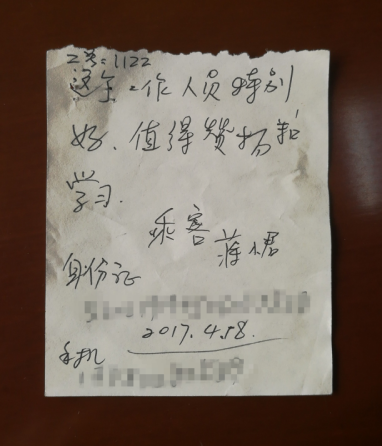 工号:1122
这全工作人员特别
好、值得赞扬和
学习.
乘客
身份证
2017.4.18.
手机